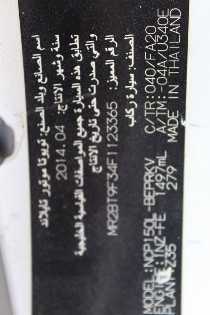 اسم الصانع وبلد الصنع: تويوتا موتور تايلاند
سنة وشهر الإنتاج: 2014.04
تطابق هذه السيارة جميع المواصفات القياسية الخليجية
والتي صدرت حتى تاريخ الإنتاج
الرقم المميز: MR2BT9F34F1123365
الصنف: سيارة ركاب
MODEL:NCP150L-BEPRKV C/TR:040/FA20
ENGINE:1NZ-FE 1497mL A/TM:-04A/U340E
PLANT:Z35 279 MADE IN THAILAND